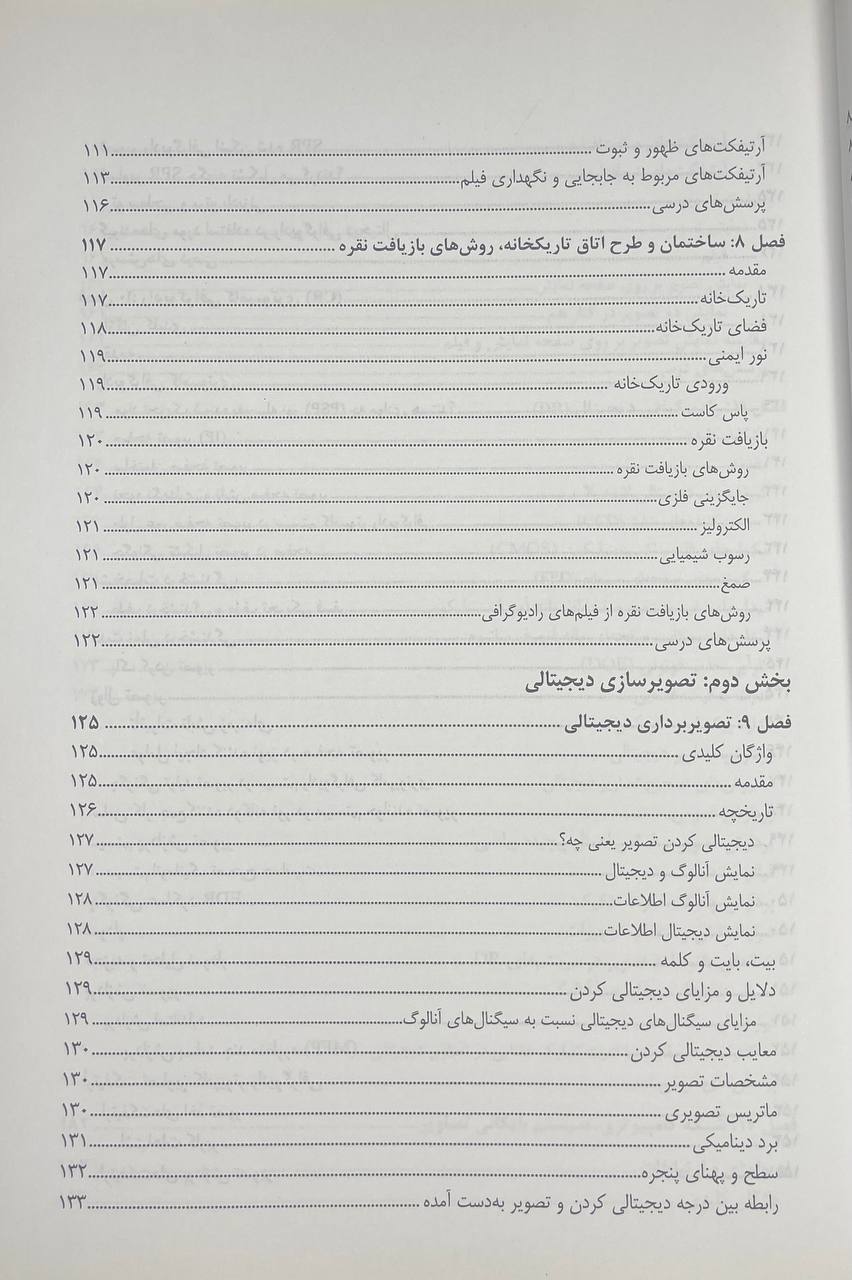 آرتیفکت‌های ظهور و ثبوت ............ ۱۱۱
آرتیفکت‌های مربوط به جابجایی و نگهداری فیلم ............ ۱۱۳
پرسش‌های درسی ............ ۱۱۶
فصل ۸: ساختمان و طرح اتاق تاریکخانه، روش‌های بازیافت نقره ............ ۱۱۷
مقدمه ............ ۱۱۷
تاریک‌خانه ............ ۱۱۷
فضای تاریک‌خانه ............ ۱۱۸
نور ایمنی ............ ۱۱۹
ورودی تاریک‌خانه ............ ۱۱۹
پاس کاست ............ ۱۱۹
بازیافت نقره ............ ۱۲۰
روش‌های بازیافت نقره ............ ۱۲۰
جایگزینی فلزی ............ ۱۲۰
الکترولیز ............ ۱۲۱
رسوب شیمیایی ............ ۱۲۱
صمغ ............ ۱۲۱
روش‌های بازیافت نقره از فیلم‌های رادیوگرافی ............ ۱۲۲
پرسش‌های درسی ............ ۱۲۲
بخش دوم: تصویرسازی دیجیتالی
فصل ۹: تصویربرداری دیجیتالی ............ ۱۲۵
واژگان کلیدی ............ ۱۲۵
مقدمه ............ ۱۲۵
تاریخچه ............ ۱۲۶
دیجیتالی کردن تصویر یعنی چه؟ ............ ۱۲۷
نمایش آنالوگ و دیجیتال ............ ۱۲۷
نمایش آنالوگ اطلاعات ............ ۱۲۸
نمایش دیجیتال اطلاعات ............ ۱۲۸
بیت، بایت و کلمه ............ ۱۲۹
دلایل و مزایای دیجیتالی کردن ............ ۱۲۹
مزایای سیگنال‌های دیجیتالی نسبت به سیگنال‌های آنالوگ ............ ۱۲۹
معایب دیجیتالی کردن ............ ۱۳۰
مشخصات تصویر ............ ۱۳۰
ماتریس تصویری ............ ۱۳۰
برد دینامیکی ............ ۱۳۱
سطح و پهنای پنجره ............ ۱۳۲
رابطه بین درجه دیجیتالی کردن و تصویر به‌دست آمده ............ ۱۳۳